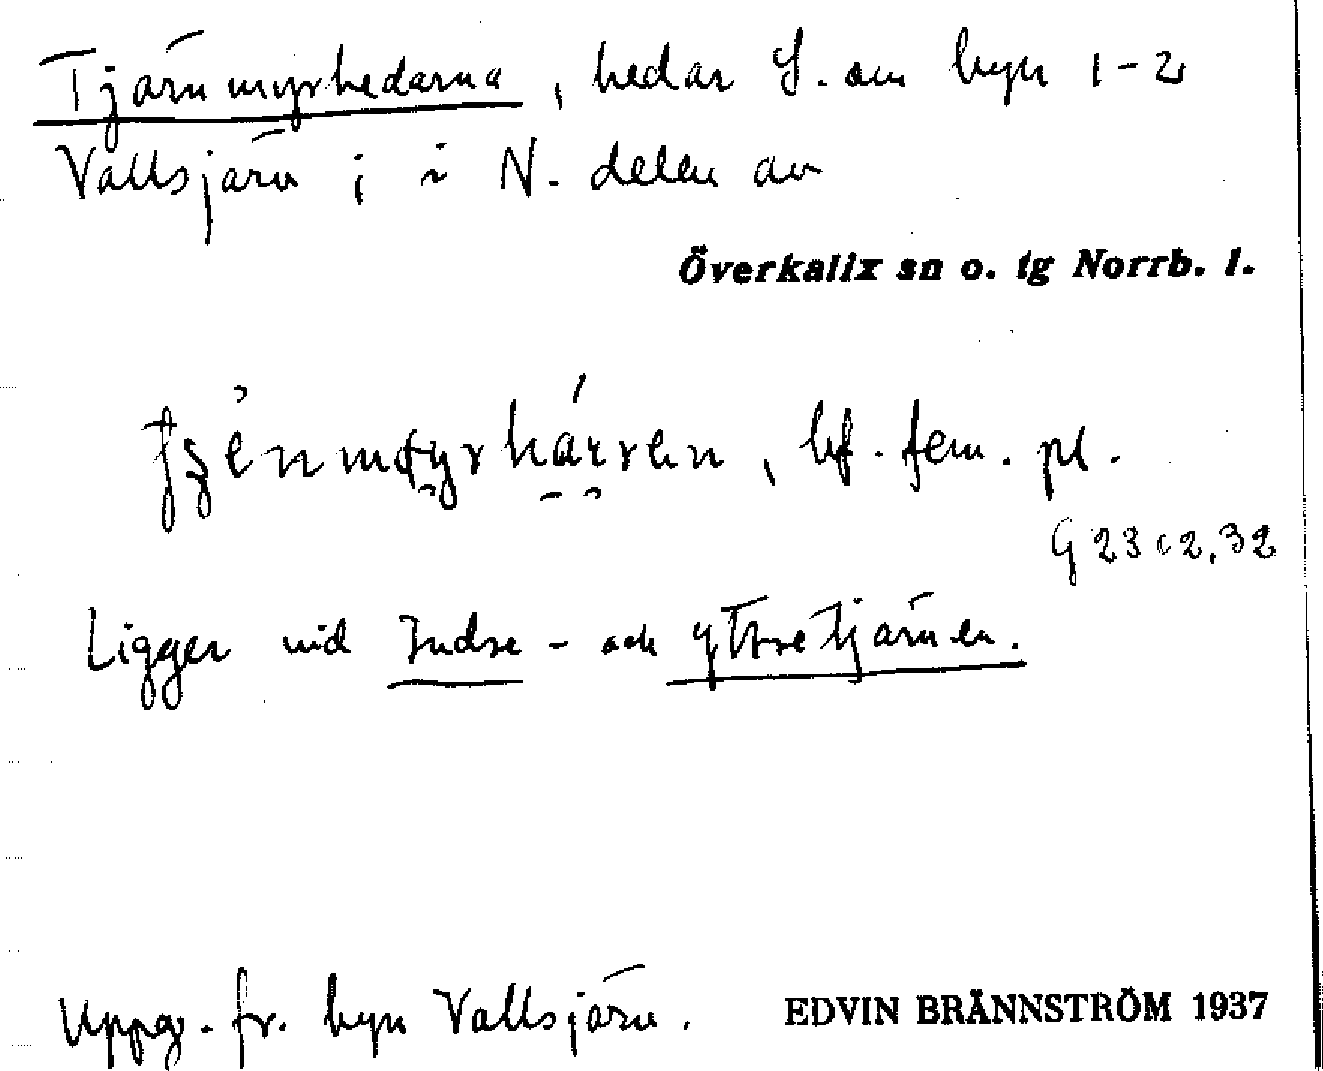 Tjärnmyrhedarna, hedar S. om byn 1-2
Vallsjärv i i N. delen av
Överkalix sn o. tg Norrb. l.
bf. fem. pl.
G 23 c 2,32
Ligger vid Indre- och Yttretjärnen.
Uppg. fr. byn Vallsjärv.
EDVIN BRÄNNSTRÖM 1937